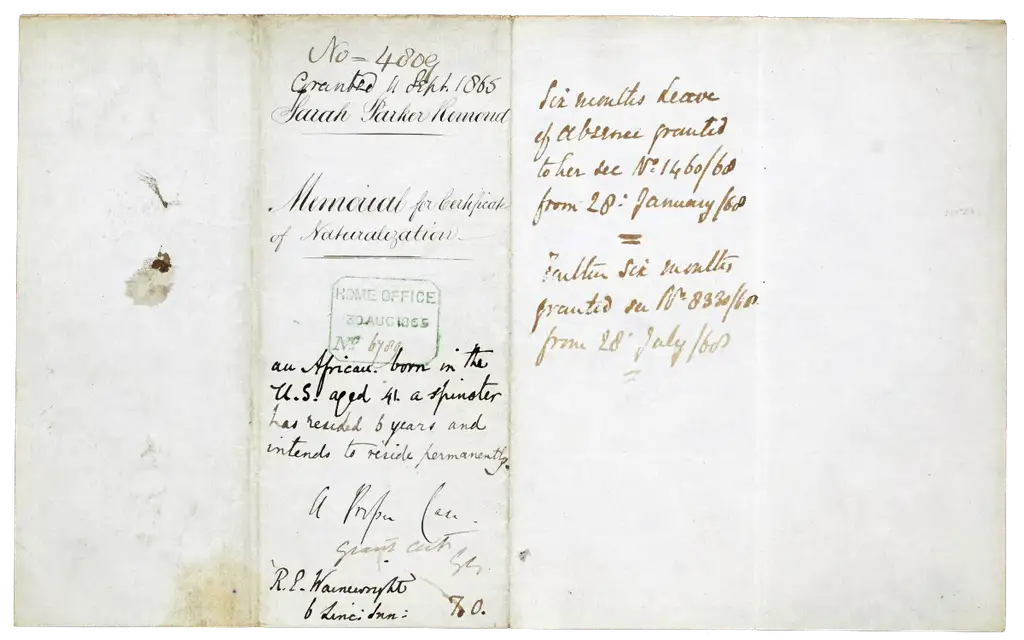 No = 4809
Granted 11 Sept. 1865
Sarah Parker Remond
Memorial for Certificate
of Naturalization
HOME OFFICE
30 AUG 1865
No 6789
an African. born in the
U.S. aged 41. a spinster
has resided 6 years and
intends to reside permanently.
A Proper Case.
grant cert
R. E. Wainewright
6 Linc: Inn:
7.0.
Six months Leave
of absence granted
to her see No. 1460/68
from 28: January/68
Further six months
granted see No. 8330/68
from 28: July/68